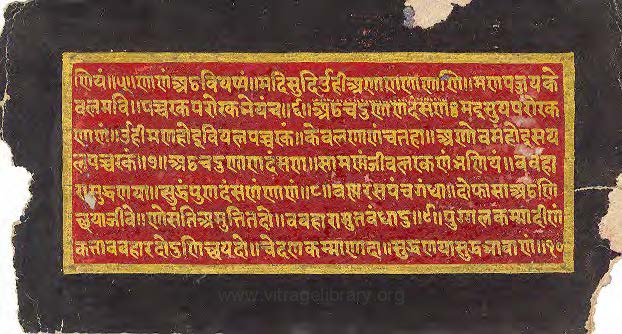 णियं॥५॥णाणंअठवियप्पं॥मदिसुदिउहीअणाणणाणाणि॥मणपज्जयके
वलमवि॥पच्चरकपरोरकभेयंच॥६॥अठचउणाणदंसण॥मइसुयपरोरक
णाणं॥उहीमणहोइवियलपच्चरकं॥केवलणाणंचतहा॥अणोवमंहोइसय
लपच्चरकं॥७॥अठचउणाणदंसण॥सामणंजीवलरकणंभणियं॥ववहा
रासुद्धणया॥सुद्धंपुणदंसणंणाणं॥८॥वणरसपंचगंधा॥दोफासाअठणि
च्छयाजीवे॥णोसंतिअमुत्तितदो॥ववहारामुत्तबंधाउ॥९॥पुग्गलकम्मादीणं
कत्ताववहारदोउणिच्छयदो॥चेदणकम्माणादा॥सुद्धणयासुद्धभावाणं॥१०
www.vitragelibrary.org